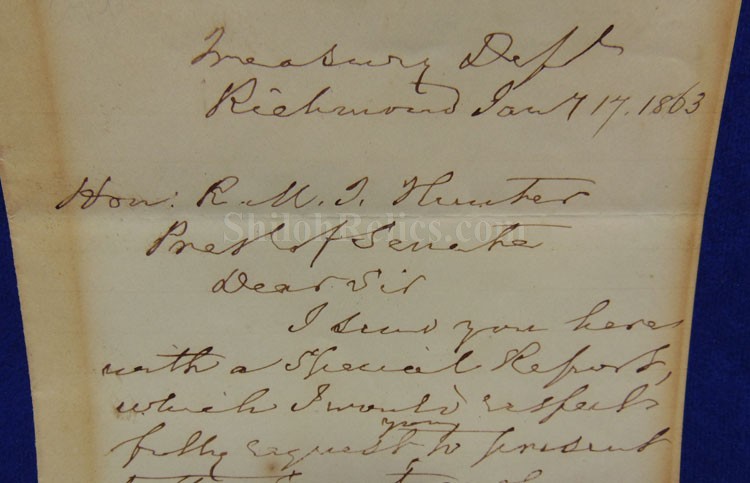 Treasury Dept
Richmond Jany 17. 1863
Hon: R. M. T. Hunter
Prest of Senate
ShilohRelics.com
Dear Sir
I send you here
with a Special Report,
which I would respect
fully request you to present
to the